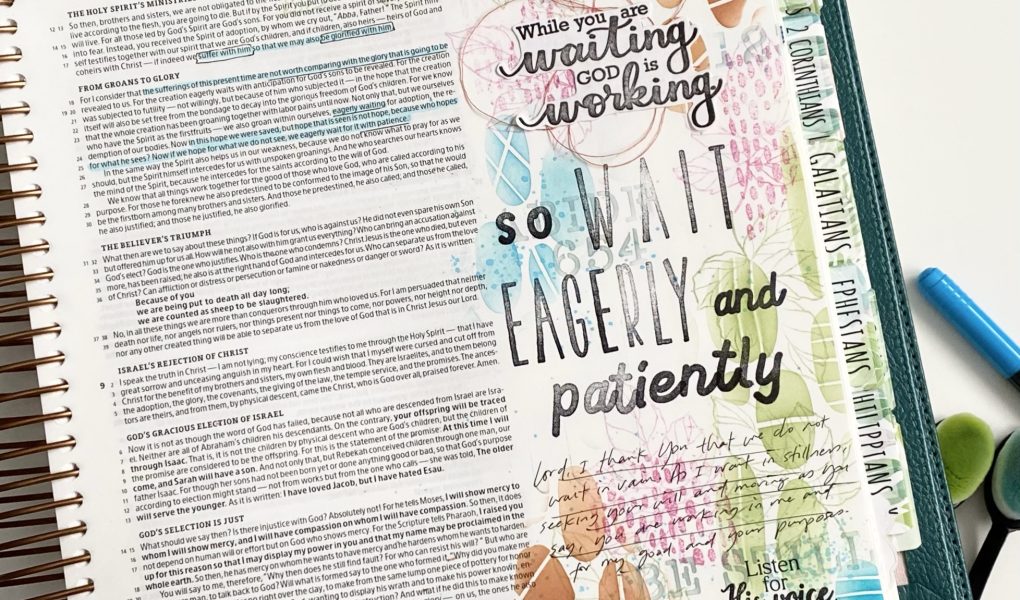 THE HOLY SPIRIT'S MINISTRIES
12 13 So then, brothers and sisters, we are not obligated to the
live according to the flesh, you are going to die. But if by the Spirit you put
14 15 will live. For all those led by God's Spirit are God's sons. For you did not receive a spirit of
16 into fear. Instead, you received the Spirit of adoption, by whom we cry out, "Abba, Father!" The Spirit him
17 self testifies together with our spirit that we are God's children, and if children, also heirs — heirs of God and
coheirs with Christ — if indeed we suffer with him so that we may also be glorified with him.
FROM GROANS TO GLORY
18 For I consider that the sufferings of this present time are not worth comparing with the glory that is going to be
19 revealed to us. For the creation eagerly waits with anticipation for God's sons to be revealed. For the creation
20 was subjected to futility — not willingly, but because of him who subjected it — in the hope that the creation
21 itself will also be set free from the bondage to decay into the glorious freedom of God's children. For we know
22 that the whole creation has been groaning together with labor pains until now. Not only that, but we ourselves
23 who have the Spirit as the firstfruits — we also groan within ourselves, eagerly waiting for adoption, the re-
24 demption of our bodies. Now in this hope we were saved, but hope that is seen is not hope, because who hopes
25 for what he sees? Now if we hope for what we do not see, we eagerly wait for it with patience.
26 In the same way the Spirit also helps us in our weakness, because we do not know what to pray for as we
27 should, but the Spirit himself intercedes for us with unspoken groanings. And he who searches our hearts knows
the mind of the Spirit, because he intercedes for the saints according to the will of God.
28 We know that all things work together for the good of those who love God, who are called according to his
29 purpose. For those he foreknew he also predestined to be conformed to the image of his Son, so that he would
30 be the firstborn among many brothers and sisters. And those he predestined, he also called; and those he called,
he also justified; and those he justified, he also glorified.
THE BELIEVER'S TRIUMPH
31 32 What then are we to say about these things? If God is for us, who is against us? He did not even spare his own Son
33 but offered him up for us all. How will he not also with him grant us everything? Who can bring an accusation against
34 God's elect? God is the one who justifies. Who is the one who condemns? Christ Jesus is the one who died, but even
35 more, has been raised; he also is at the right hand of God and intercedes for us. Who can separate us from the love
36 of Christ? Can affliction or distress or persecution or famine or nakedness or danger or sword? As it is written:
Because of you
we are being put to death all day long;
we are counted as sheep to be slaughtered.
37 38 No, in all these things we are more than conquerors through him who loved us. For I am persuaded that neither
39 death nor life, nor angels nor rulers, nor things present nor things to come, nor powers, nor height nor depth,
nor any other created thing will be able to separate us from the love of God that is in Christ Jesus our Lord.
ISRAEL'S REJECTION OF CHRIST
9 2 I speak the truth in Christ — I am not lying; my conscience testifies to me through the Holy Spirit — that I have
3 great sorrow and unceasing anguish in my heart. For I could wish that I myself were cursed and cut off from
4 Christ for the benefit of my brothers and sisters, my own flesh and blood. They are Israelites, and to them belong
5 the adoption, the glory, the covenants, the giving of the law, the temple service, and the promises. The ances-
tors are theirs, and from them, by physical descent, came the Christ, who is God over all, praised forever. Amen.
GOD'S GRACIOUS ELECTION OF ISRAEL
6 Now it is not as though the word of God has failed, because not all who are descended from Israel are Isra-
7 el. Neither are all of Abraham's children his descendants. On the contrary, your offspring will be traced
8 through Isaac. That is, it is not the children by physical descent who are God's children, but the children of
9 the promise are considered to be the offspring. For this is the statement of the promise: At this time I will
10 come, and Sarah will have a son. And not only that, but Rebekah conceived children through one man, our
11 father Isaac. For though her sons had not been born yet or done anything good or bad, so that God's purpose
12 according to election might stand — not from works but from the one who calls — she was told, The older
13 will serve the younger. As it is written: I have loved Jacob, but I have hated Esau.
GOD'S SELECTION IS JUST
14 15 What should we say then? Is there injustice with God? Absolutely not! For he tells Moses, I will show mercy to
16 whom I will show mercy, and I will have compassion on whom I will have compassion. So then, it does
17 not depend on human will or effort but on God who shows mercy. For the Scripture tells Pharaoh, I raised you
up for this reason so that I may display my power in you and that my name may be proclaimed in the
18 whole earth. So then, he has mercy on whom he wants to have mercy and he hardens whom he wants to harden.
You will say to me, therefore, "Why then does he still find fault? For who can resist his will?" But who are
While you are
waiting
GOD is
working
so WAIT
EAGERLY and
patiently
Lord, I thank You that we do not
wait in vain. As I wait in stillness,
seeking your will and moving as you
say, you are working in me and
for my good and your purposes.
BE STILL
Listen
for
His voice
2 CORINTHIANS
GALATIANS
EPHESIANS
PHILIPPIANS